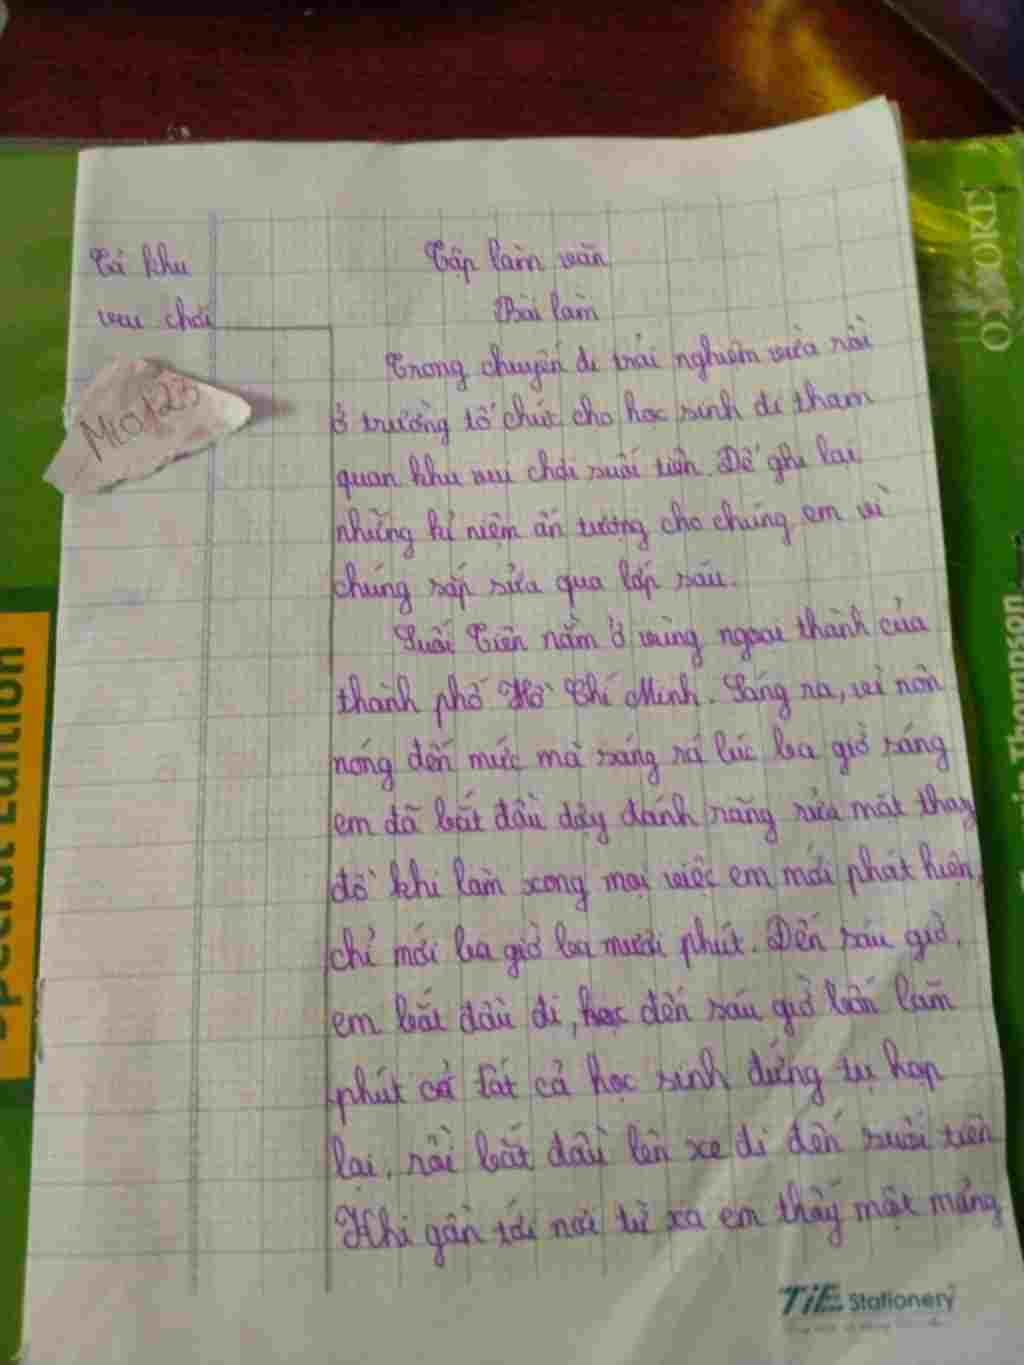 Tả khu
vui chơi
Tập làm văn
Bài làm
Mia123
Trong chuyến đi trải nghiệm vừa rồi
ở trường tổ chức cho học sinh đi tham
quan khu vui chơi suối tiên. Để ghi lại
những kỉ niệm ấn tượng cho chúng em vì
chúng sắp sửa qua lớp sáu.
Suối Tiên nằm ở vùng ngoại thành của
thành phố Hồ Chí Minh. Sáng ra, vì nôn
nóng đến mức mà sáng rá lúc ba giờ sáng
em đã bắt đầu dậy đánh răng rửa mặt thay
đồ khi làm xong mọi việc em mới phát hiện,
chỉ mới ba giờ ba mươi phút. Đến sáu giờ,
em bắt đầu đi, học đến sáu giờ bốn lăm
phút cả tất cả học sinh đứng tụ họp
lại, rồi bắt đầu lên xe đi đến suối tiên
Khi gần tới nơi từ xa em thấy một mảng
TiE Stationery
OXFORD
Special Edition
Thompson